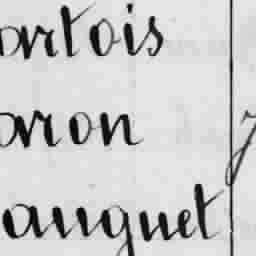 ortois
oron
auguet